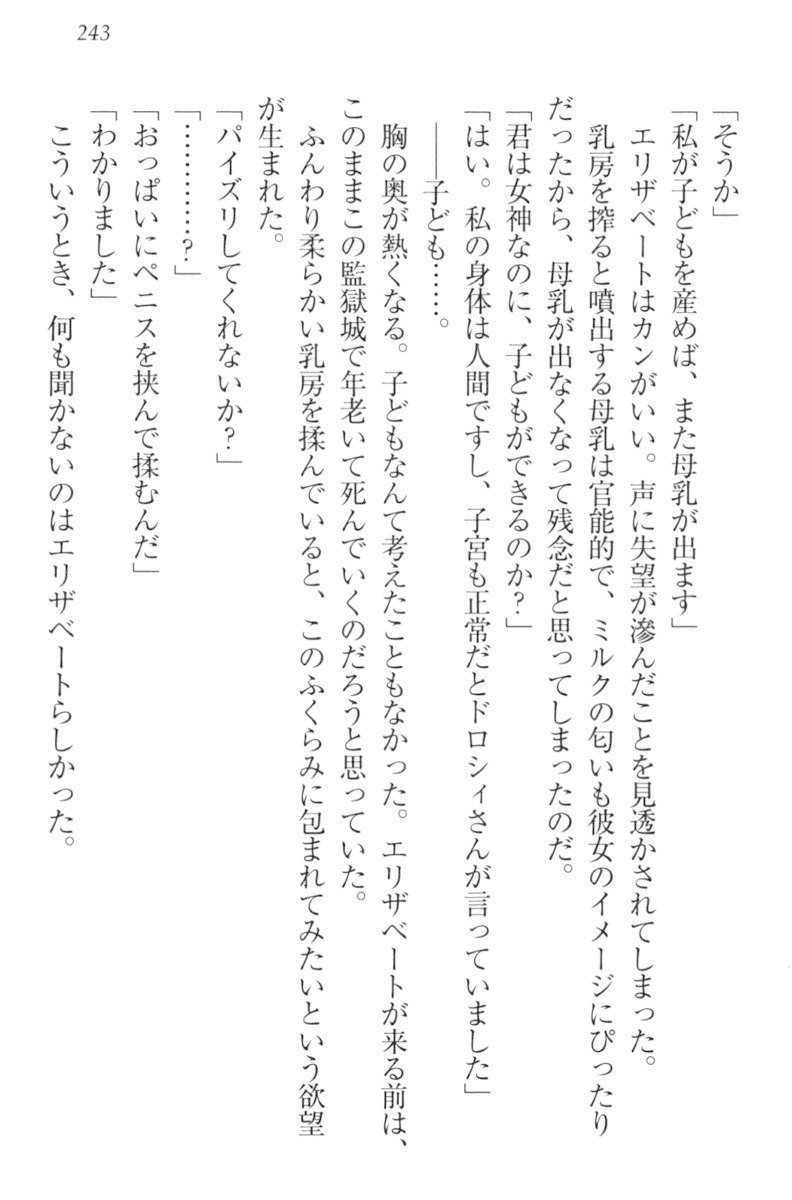 243
「そうか」
「私が子どもを産めば、また母乳が出ます」
エリザベートはカンがいい。声に失望が滲んだことを見透かされてしまった。
乳房を搾ると噴出する母乳は官能的で、ミルクの匂いも彼女のイメージにぴったり
だったから、母乳が出なくなって残念だと思ってしまったのだ。
「君は女神なのに、子どもができるのか?」
「はい。私の身体は人間ですし、子宮も正常だとドロシィさんが言っていました」
――子ども……。
胸の奥が熱くなる。子どもなんて考えたこともなかった。エリザベートが来る前は、
このままこの監獄城で年老いて死んでいくのだろうと思っていた。
ふんわり柔らかい乳房を揉んでいると、このふくらみに包まれてみたいという欲望
が生まれた。
「パイズリしてくれないか?」
「…………?」
「おっぱいにペニスを挟んで揉むんだ」
「わかりました」
こういうとき、何も聞かないのはエリザベートらしかった。